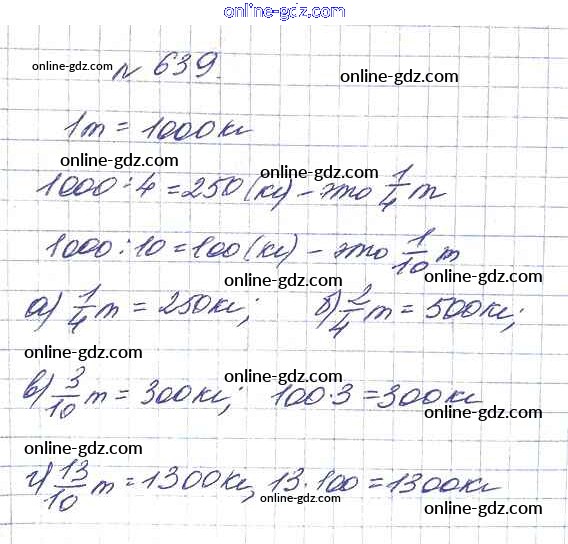 online-gdz.com
online-gdz.com
№ 639.
online-gdz.com
1т = 1000кг
online-gdz.com
online-gdz.com
1000:4 = 250(кг) - это 1/4 т
1000:10 = 100(кг) - это 1/10 т
online-gdz.com
online-gdz.com
а) 1/4 т = 250кг; б) 2/4 т = 500кг;
online-gdz.com
online-gdz.com
в) 3/10 т = 300кг; 100·3 = 300кг
online-gdz.com
online-gdz.com
г) 13/10 т = 1300кг, 13·100 = 1300кг
online-gdz.com
online-gdz.com